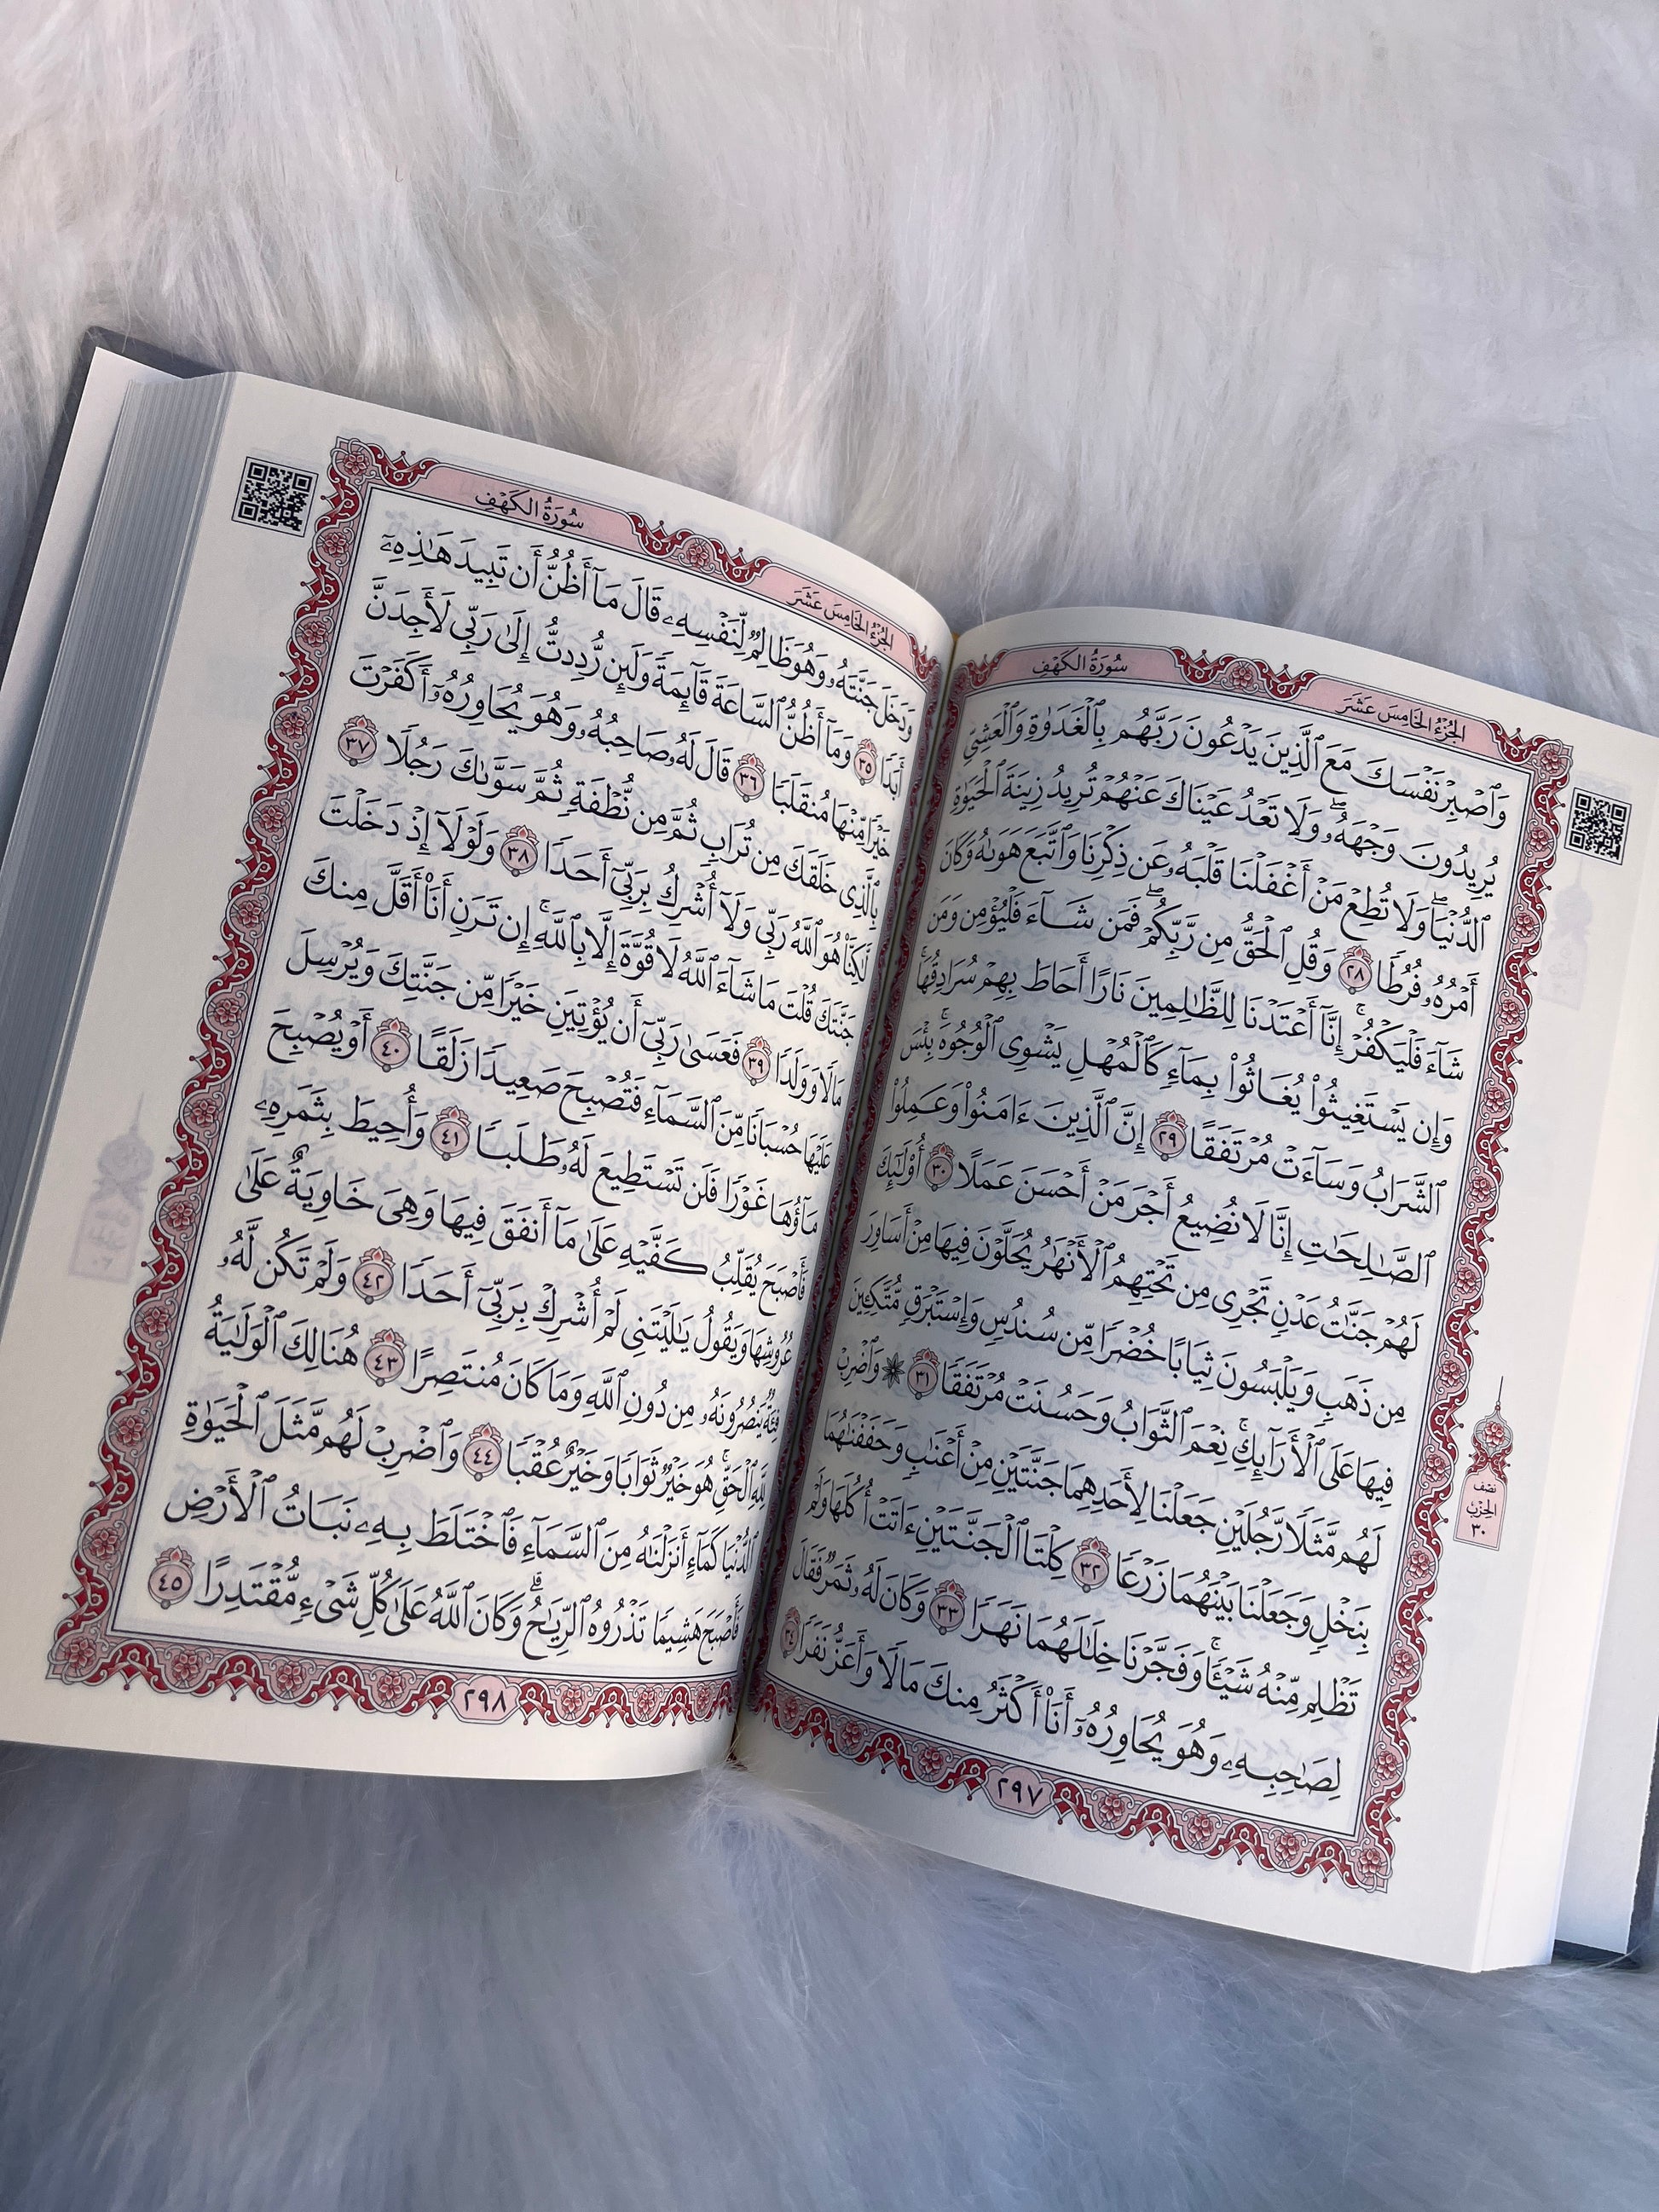 سُورَةُ الكَهۡفِ
الجُزۡءُ الخَامِسَ عَشَرَ
وَٱصۡبِرۡ نَفۡسَكَ مَعَ ٱلَّذِينَ يَدۡعُونَ رَبَّهُم بِٱلۡغَدَوٰةِ وَٱلۡعَشِيِّ
يُرِيدُونَ وَجۡهَهُۥۖ وَلَا تَعۡدُ عَيۡنَاكَ عَنۡهُمۡ تُرِيدُ زِينَةَ ٱلۡحَيَوٰةِ
ٱلدُّنۡيَاۖ وَلَا تُطِعۡ مَنۡ أَغۡفَلۡنَا قَلۡبَهُۥ عَن ذِكۡرِنَا وَٱتَّبَعَ هَوَىٰهُ وَكَانَ
أَمۡرُهُۥ فُرُطٗا ٢٨ وَقُلِ ٱلۡحَقُّ مِن رَّبِّكُمۡۖ فَمَن شَآءَ فَلۡيُؤۡمِن وَمَن
شَآءَ فَلۡيَكۡفُرۡۚ إِنَّآ أَعۡتَدۡنَا لِلظَّٰلِمِينَ نَارًا أَحَاطَ بِهِمۡ سُرَادِقُهَاۚ
وَإِن يَسۡتَغِيثُواْ يُغَاثُواْ بِمَآءٖ كَٱلۡمُهۡلِ يَشۡوِي ٱلۡوُجُوهَۚ بِئۡسَ
ٱلشَّرَابُ وَسَآءَتۡ مُرۡتَفَقًا ٢٩ إِنَّ ٱلَّذِينَ ءَامَنُواْ وَعَمِلُواْ
ٱلصَّٰلِحَٰتِ إِنَّا لَا نُضِيعُ أَجۡرَ مَنۡ أَحۡسَنَ عَمَلًا ٣٠ أُوْلَٰٓئِكَ
لَهُمۡ جَنَّٰتُ عَدۡنٖ تَجۡرِي مِن تَحۡتِهِمُ ٱلۡأَنۡهَٰرُ يُحَلَّوۡنَ فِيهَا مِنۡ أَسَاوِرَ
مِن ذَهَبٖ وَيَلۡبَسُونَ ثِيَابًا خُضۡرٗا مِّن سُندُسٖ وَإِسۡتَبۡرَقٖ مُّتَّكِـِٔينَ
فِيهَا عَلَى ٱلۡأَرَآئِكِۚ نِعۡمَ ٱلثَّوَابُ وَحَسُنَتۡ مُرۡتَفَقٗا ٣١ ۞ وَٱضۡرِبۡ
لَهُم مَّثَلٗا رَّجُلَيۡنِ جَعَلۡنَا لِأَحَدِهِمَا جَنَّتَيۡنِ مِنۡ أَعۡنَٰبٖ وَحَفَفۡنَٰهُمَا
بِنَخۡلٖ وَجَعَلۡنَا بَيۡنَهُمَا زَرۡعٗا ٣٢ كِلۡتَا ٱلۡجَنَّتَيۡنِ ءَاتَتۡ أُكُلَهَا وَلَمۡ
تَظۡلِم مِّنۡهُ شَيۡـٔٗاۚ وَفَجَّرۡنَا خِلَٰلَهُمَا نَهَرٗا ٣٣ وَكَانَ لَهُۥ ثَمَرٞ فَقَالَ
لِصَٰحِبِهِۦ وَهُوَ يُحَاوِرُهُۥٓ أَنَا۠ أَكۡثَرُ مِنكَ مَالٗا وَأَعَزُّ نَفَرٗا ٣٤
نصف
الحِزۡبِ
٣٠
٢٩٧
سُورَةُ الكَهۡفِ
الجُزۡءُ الخَامِسَ عَشَرَ
وَدَخَلَ جَنَّتَهُۥ وَهُوَ ظَالِمٞ لِّنَفۡسِهِۦ قَالَ مَآ أَظُنُّ أَن تَبِيدَ هَٰذِهِۦٓ
أَبَدٗا ٣٥ وَمَآ أَظُنُّ ٱلسَّاعَةَ قَآئِمَةٗ وَلَئِن رُّدِدتُّ إِلَىٰ رَبِّي لَأَجِدَنَّ
خَيۡرٗا مِّنۡهَا مُنقَلَبٗا ٣٦ قَالَ لَهُۥ صَاحِبُهُۥ وَهُوَ يُحَاوِرُهُۥٓ أَكَفَرۡتَ
بِٱلَّذِي خَلَقَكَ مِن تُرَابٖ ثُمَّ مِن نُّطۡفَةٖ ثُمَّ سَوَّىٰكَ رَجُلٗا ٣٧
لَّٰكِنَّا۠ هُوَ ٱللَّهُ رَبِّي وَلَآ أُشۡرِكُ بِرَبِّيٓ أَحَدٗا ٣٨ وَلَوۡلَآ إِذۡ دَخَلۡتَ
جَنَّتَكَ قُلۡتَ مَا شَآءَ ٱللَّهُ لَا قُوَّةَ إِلَّا بِٱللَّهِۚ إِن تَرَنِ أَنَا۠ أَقَلَّ مِنكَ
مَالٗا وَوَلَدٗا ٣٩ فَعَسَىٰ رَبِّيٓ أَن يُؤۡتِيَنِ خَيۡرٗا مِّن جَنَّتِكَ وَيُرۡسِلَ
عَلَيۡهَا حُسۡبَانٗا مِّنَ ٱلسَّمَآءِ فَتُصۡبِحَ صَعِيدٗا زَلَقًا ٤٠ أَوۡ يُصۡبِحَ
مَآؤُهَا غَوۡرٗا فَلَن تَسۡتَطِيعَ لَهُۥ طَلَبٗا ٤١ وَأُحِيطَ بِثَمَرِهِۦ
فَأَصۡبَحَ يُقَلِّبُ كَفَّيۡهِ عَلَىٰ مَآ أَنفَقَ فِيهَا وَهِيَ خَاوِيَةٌ عَلَىٰ
عُرُوشِهَا وَيَقُولُ يَٰلَيۡتَنِي لَمۡ أُشۡرِكۡ بِرَبِّيٓ أَحَدٗا ٤٢ وَلَمۡ تَكُن لَّهُۥ
فِئَةٞ يَنصُرُونَهُۥ مِن دُونِ ٱللَّهِ وَمَا كَانَ مُنتَصِرًا ٤٣ هُنَالِكَ ٱلۡوَلَٰيَةُ
لِلَّهِ ٱلۡحَقِّۚ هُوَ خَيۡرٞ ثَوَابٗا وَخَيۡرٌ عُقۡبٗا ٤٤ وَٱضۡرِبۡ لَهُم مَّثَلَ ٱلۡحَيَوٰةِ
ٱلدُّنۡيَا كَمَآءٍ أَنزَلۡنَٰهُ مِنَ ٱلسَّمَآءِ فَٱخۡتَلَطَ بِهِۦ نَبَاتُ ٱلۡأَرۡضِ
فَأَصۡبَحَ هَشِيمٗا تَذۡرُوهُ ٱلرِّيَٰحُۗ وَكَانَ ٱللَّهُ عَلَىٰ كُلِّ شَيۡءٖ مُّقۡتَدِرًا ٤٥
٢٩٨